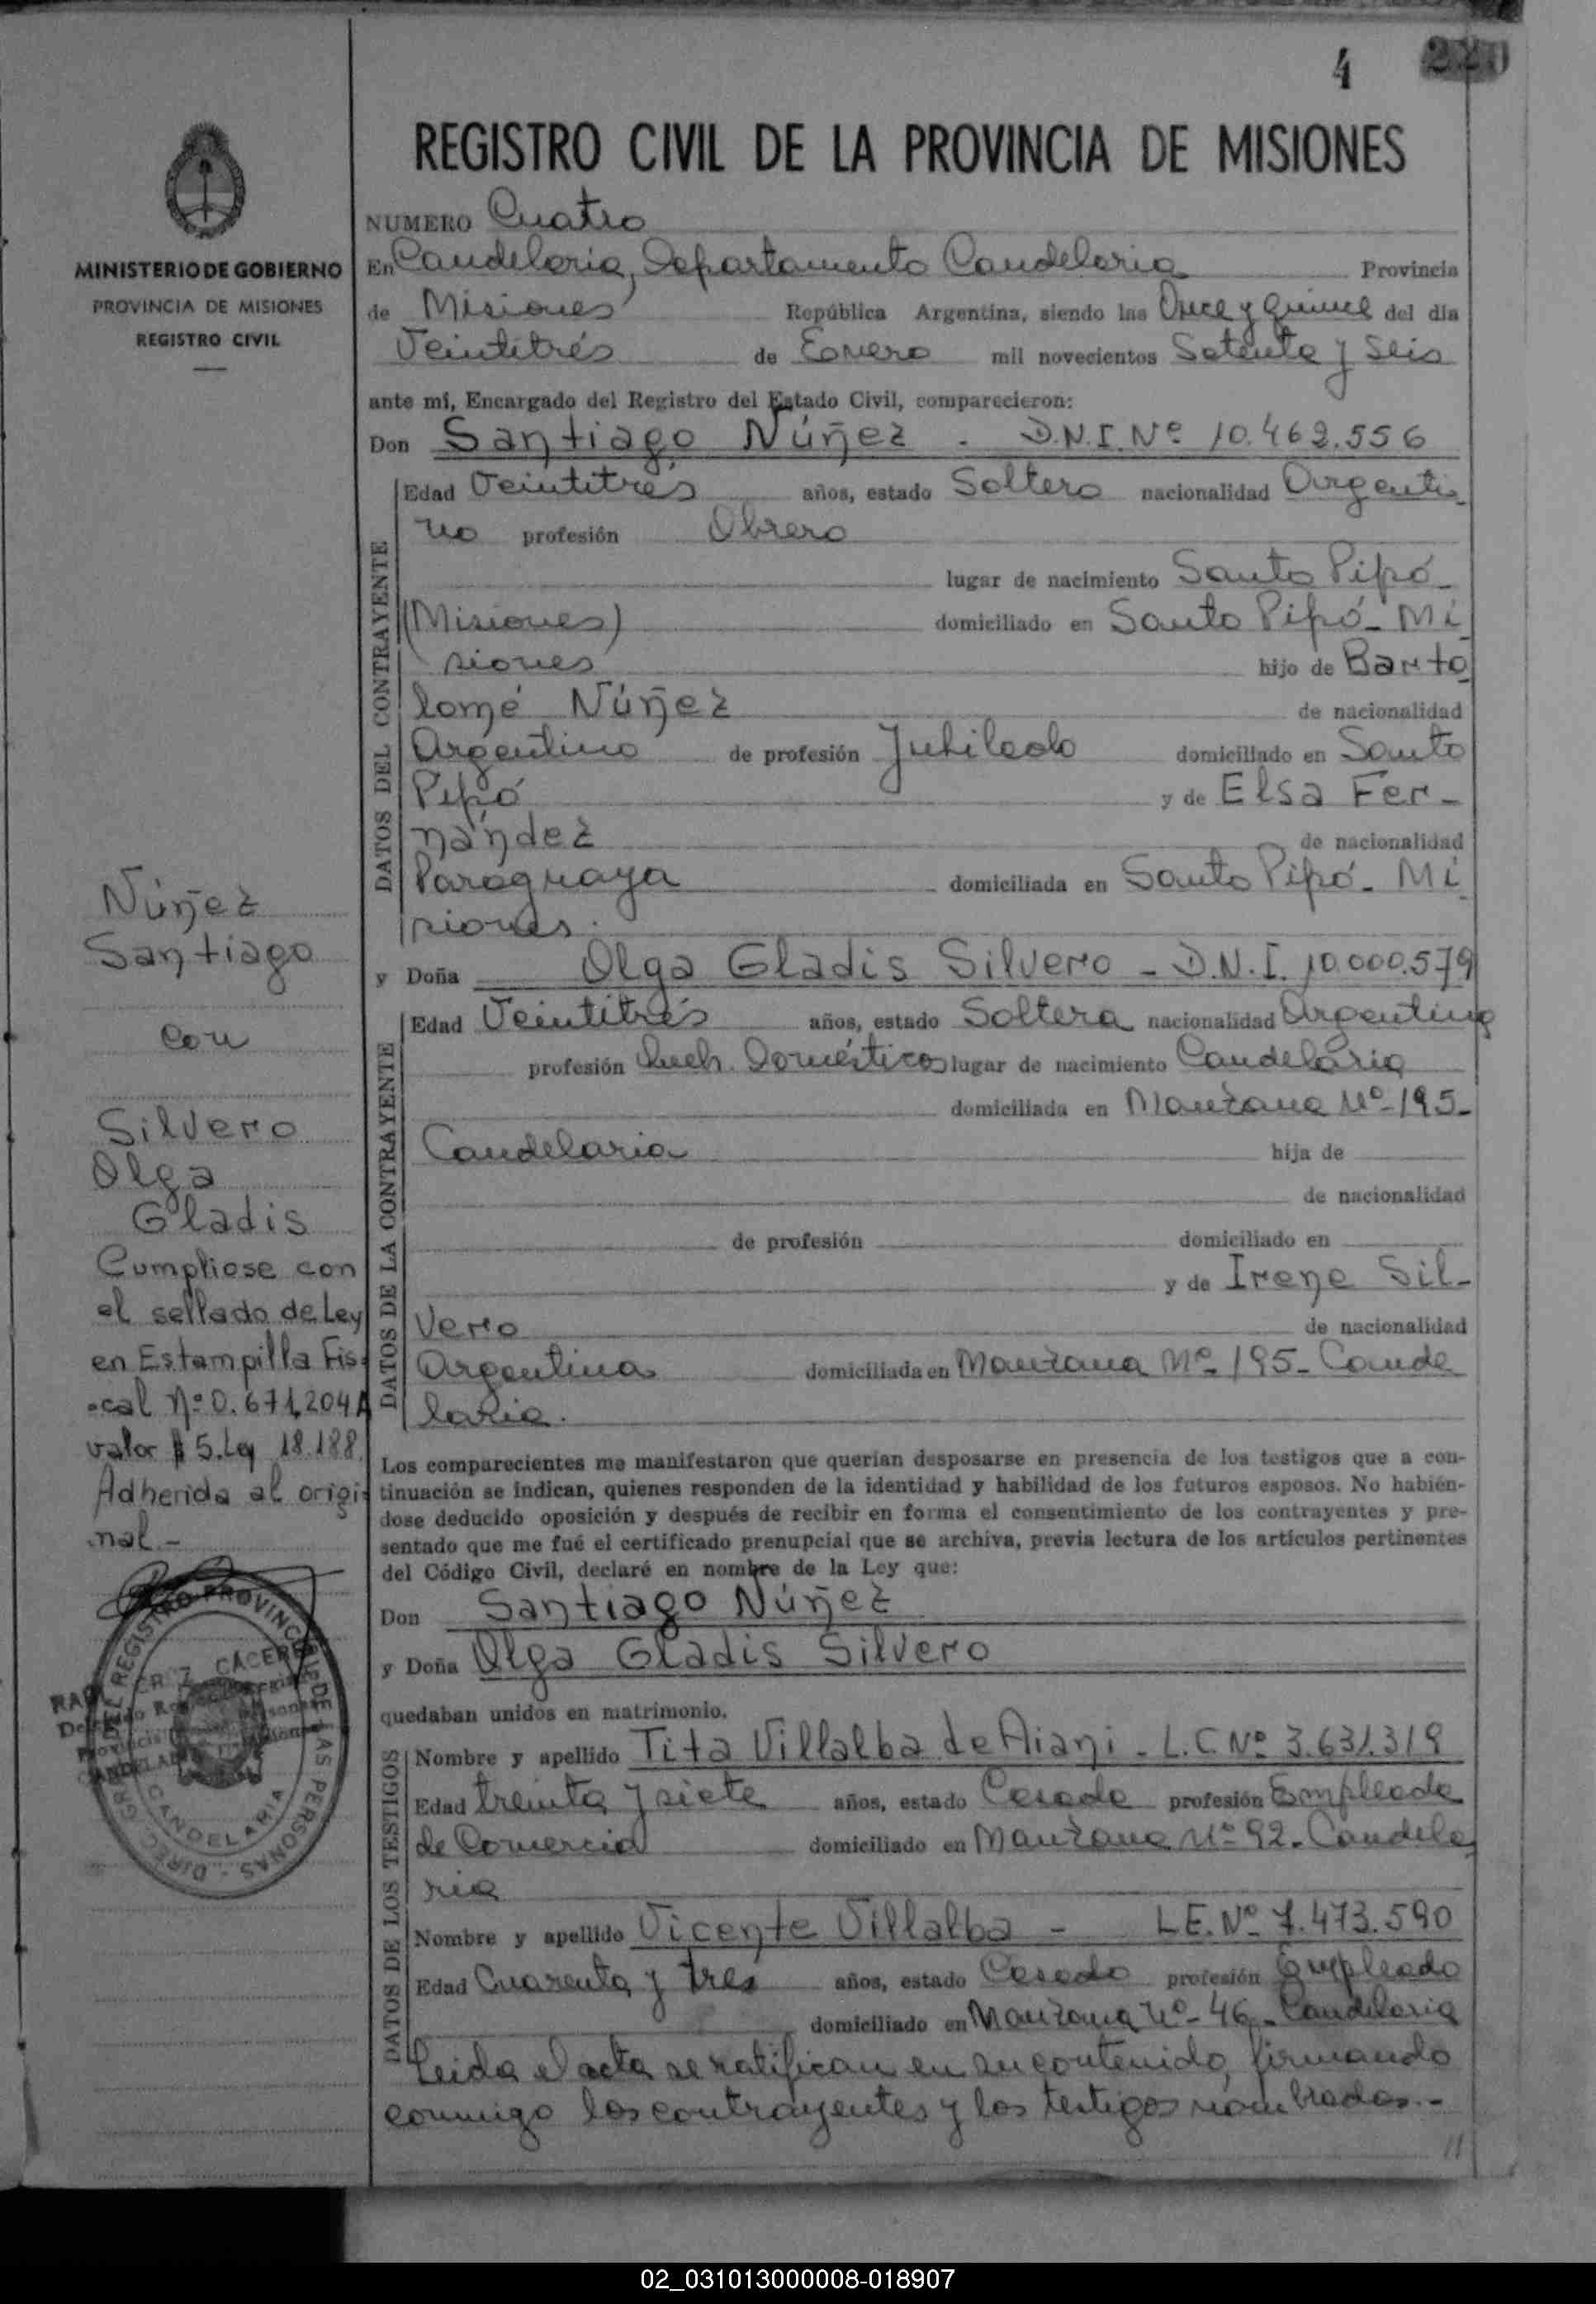 4
REGISTRO CIVIL DE LA PROVINCIA DE MISIONES
MINISTERIO DE GOBIERNO
PROVINCIA DE MISIONES
REGISTRO CIVIL
NUMERO Cuatro
En Candelaria, Departamento Candelaria Provincia
de Misiones República Argentina, siendo las Once y Quince del dia
Veintitrés de Enero mil novecientos Setenta y Seis
ante mi, Encargado del Registro del Estado Civil, comparecieron:
Don Santiago Núñez - D.N.I. Nº 10.462.556
DATOS DEL CONTRAYENTE
Edad Veintitrés años, estado Soltero nacionalidad Argenti-
no profesión Obrero
lugar de nacimiento Santo Pipó-
(Misiones) domiciliado en Santo Pipó- Mi
siones hijo de Barto
lomé Núñez de nacionalidad
Argentino de profesión Jubilado domiciliado en Santo
Pipó y de Elsa Fer-
nández de nacionalidad
Paraguaya domiciliada en Santo Pipó- Mi
siones.
y Doña Olga Gladis Silvero - D.N.I. 10.000.579
DATOS DE LA CONTRAYENTE
Edad Veintitrés años, estado Soltera nacionalidad Argentina
profesión Queh. Domésticos lugar de nacimiento Candelaria
domiciliada en Manzana Nº-195-
Candelaria hija de
de nacionalidad
de profesión domiciliado en
y de Irene Sil-
vero de nacionalidad
Argentina domiciliada en Manzana Nº 195- Cande
laria.
Los comparecientes me manifestaron que querian desposarse en presencia de los testigos que a con-
tinuación se indican, quienes responden de la identidad y habilidad de los futuros esposos. No habién-
dose deducido oposición y después de recibir en forma el consentimiento de los contrayentes y pre-
sentado que me fué el certificado prenupcial que se archiva, previa lectura de los articulos pertinentes
del Código Civil, declaré en nombre de la Ley que:
Don Santiago Núñez
y Doña Olga Gladis Silvero
quedaban unidos en matrimonio.
DATOS DE LOS TESTIGOS
Nombre y apellido Tita Villalba de Aiani - L.C. Nº 3.631.319
Edad treinta y siete años, estado Casada profesión Empleada
de Comercio domiciliado en Manzana Nº 92- Candela
ria
Nombre y apellido Vicente Villalba - L.E. Nº 7.473.590
Edad Cuarenta y tres años, estado Casado profesión Empleado
domiciliado en Manzana Nº- 46- Candelaria
Leida el acta se ratifican en su contenido, firmando
conmigo los contrayentes y los testigos nombrados.-
Núñez
Santiago
con
Silvero
Olga
Gladis
Cumpliose con
el sellado de Ley
en Estampilla Fis-
cal Nº 0.671.204A
valor $ 5. Ley 18.188.
Adherida al origi-
nal.-
CACERES
CANDELARIA
02_031013000008-018907